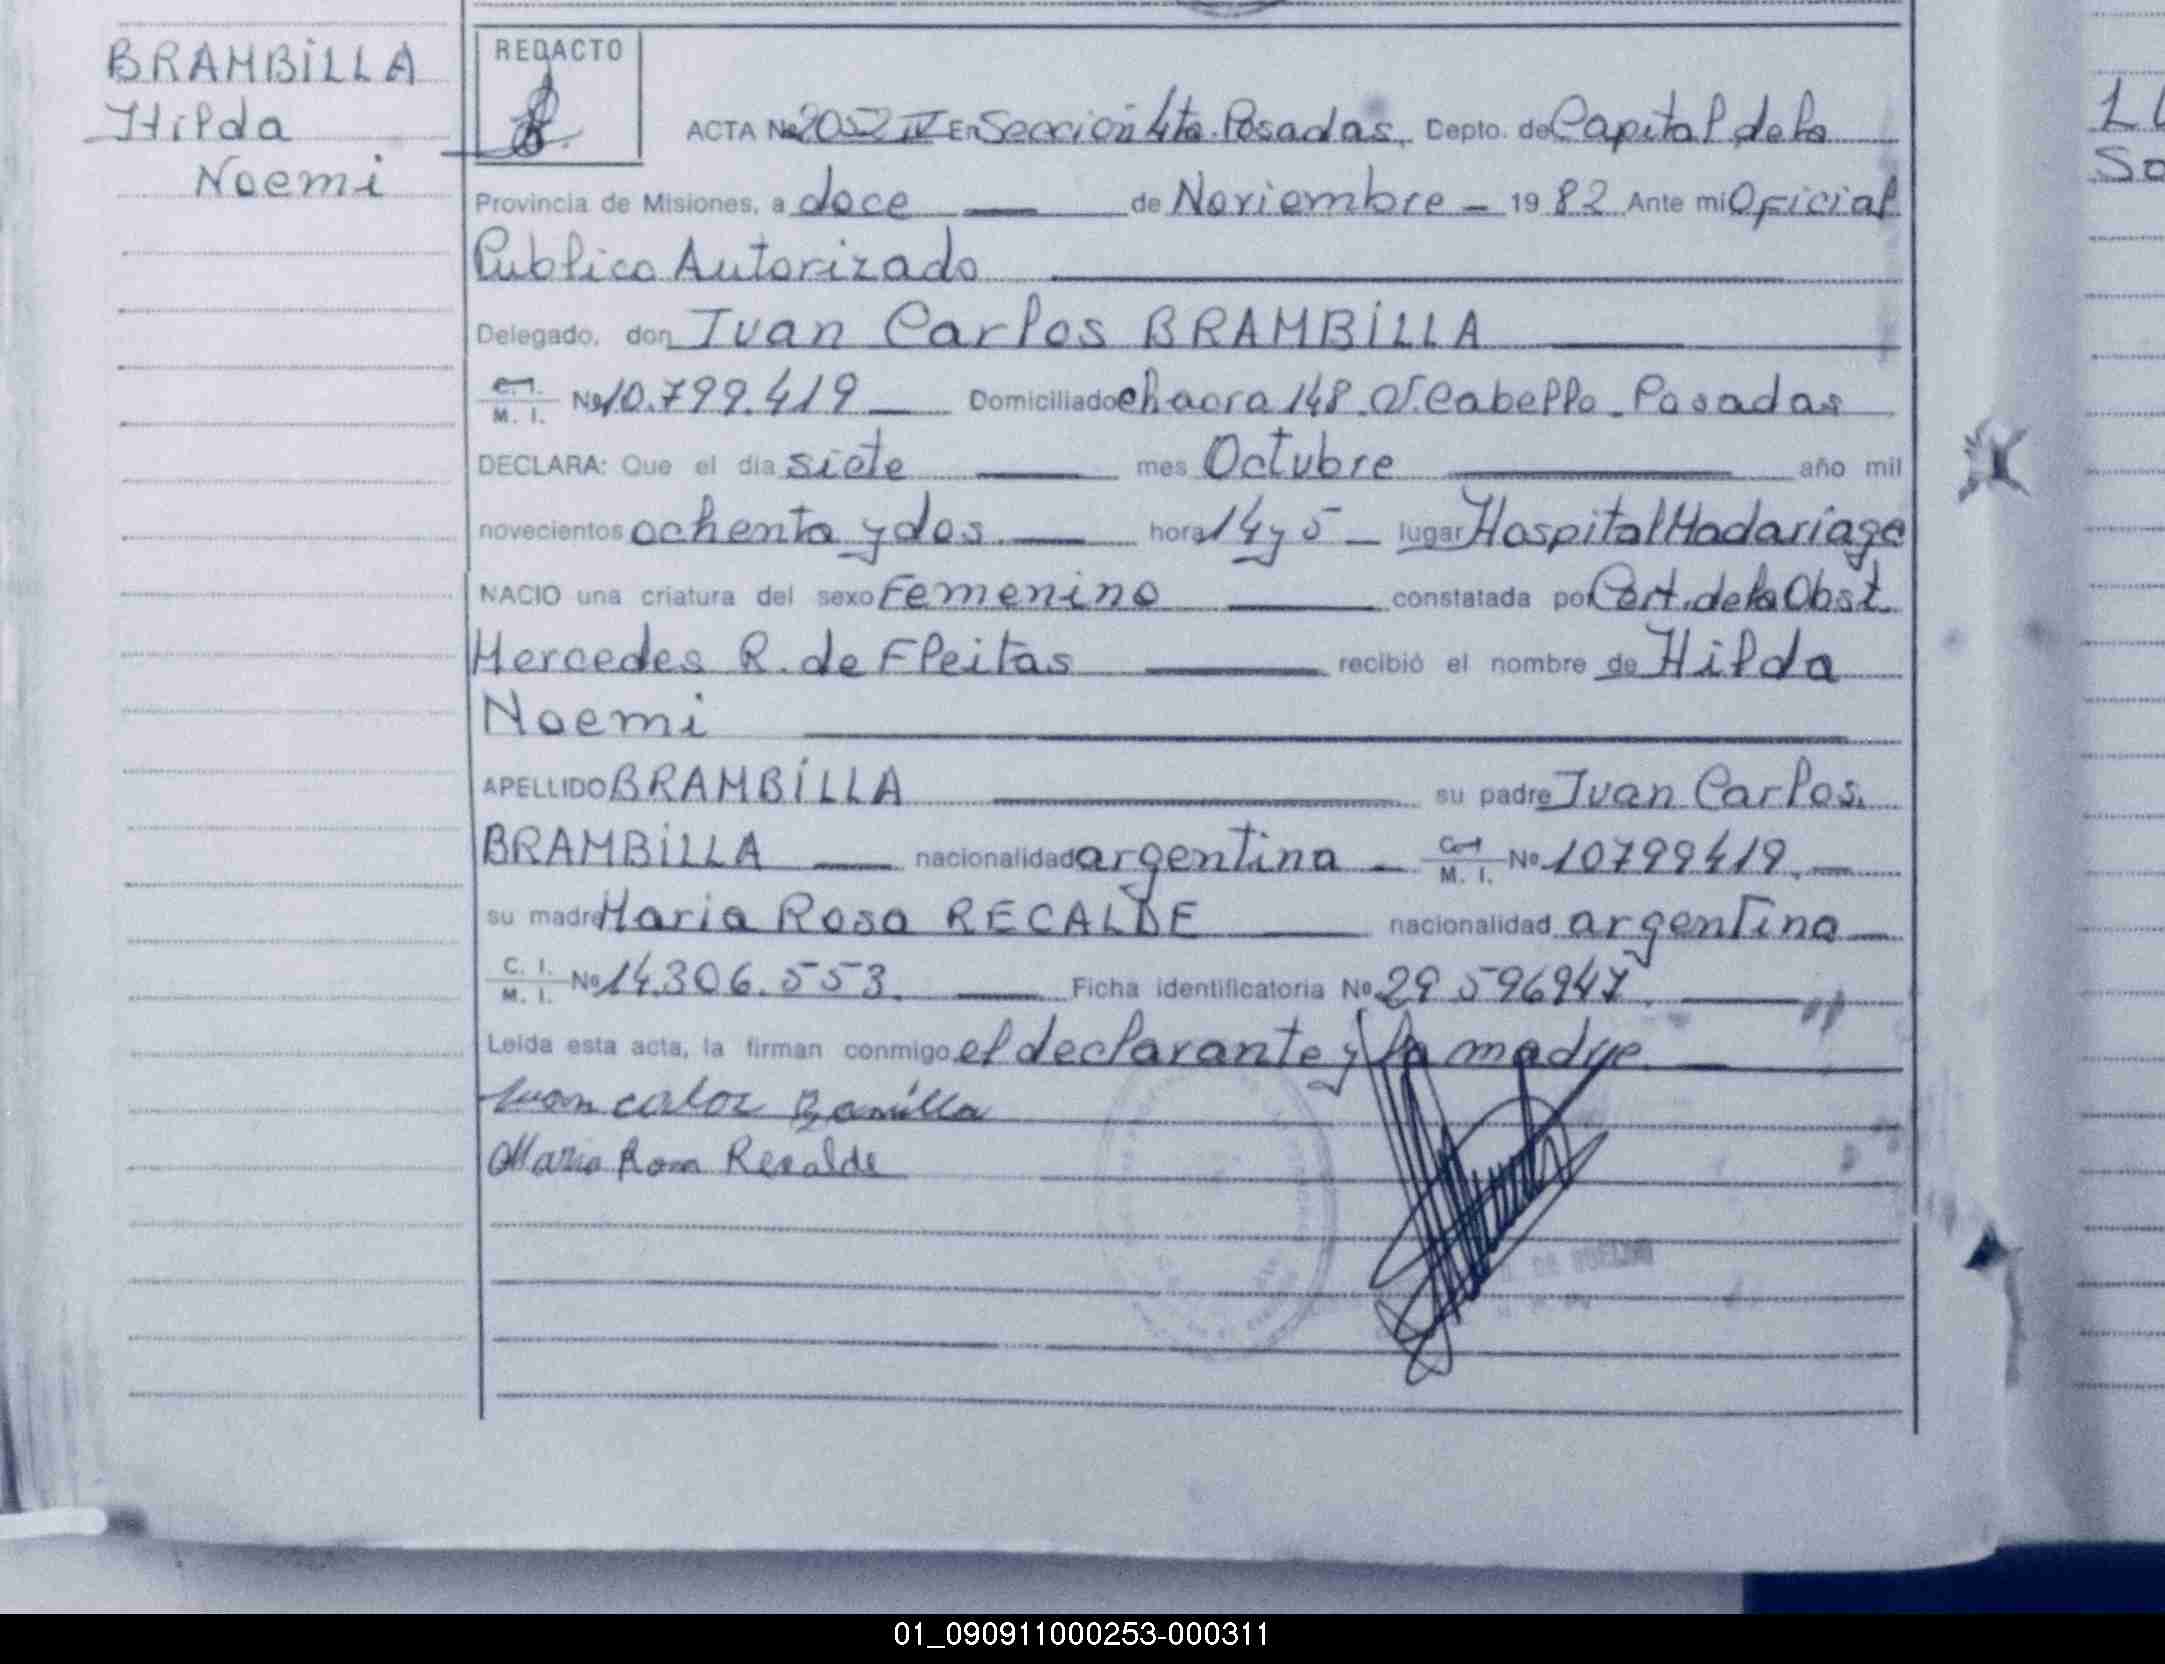 BRAMBILLA
Hilda
Noemi
REDACTO
ACTA No 2052 IV En Sección 4ta. Posadas, Depto. de Capital de la
Provincia de Misiones, a doce de Noviembre - 1982 Ante mi Oficial
Publico Autorizado
Delegado, don Juan Carlos BRAMBILLA
C. I. M. I. No 10.799.419 Domiciliado chacra 148. V. Cabello - Posadas
DECLARA: Que el día siete mes Octubre año mil
novecientos ochenta y dos hora 14 y 5 - lugar Hospital Madariaga
NACIO una criatura del sexo Femenino constatada por Cert. de la Obst.
Mercedes R. de Fleitas recibió el nombre de Hilda
Noemi
APELLIDO BRAMBILLA su padre Juan Carlos
BRAMBILLA nacionalidad argentina - C. I. M. I. No 10799419.
su madre Maria Rosa RECALDE nacionalidad argentina
C. I. M. I. No 14.306.553. Ficha identificatoria No 29 596947.
Leída esta acta, la firman conmigo el declarante y la madre
Juan
Maria Rosa Recalde
01_090911000253-000311